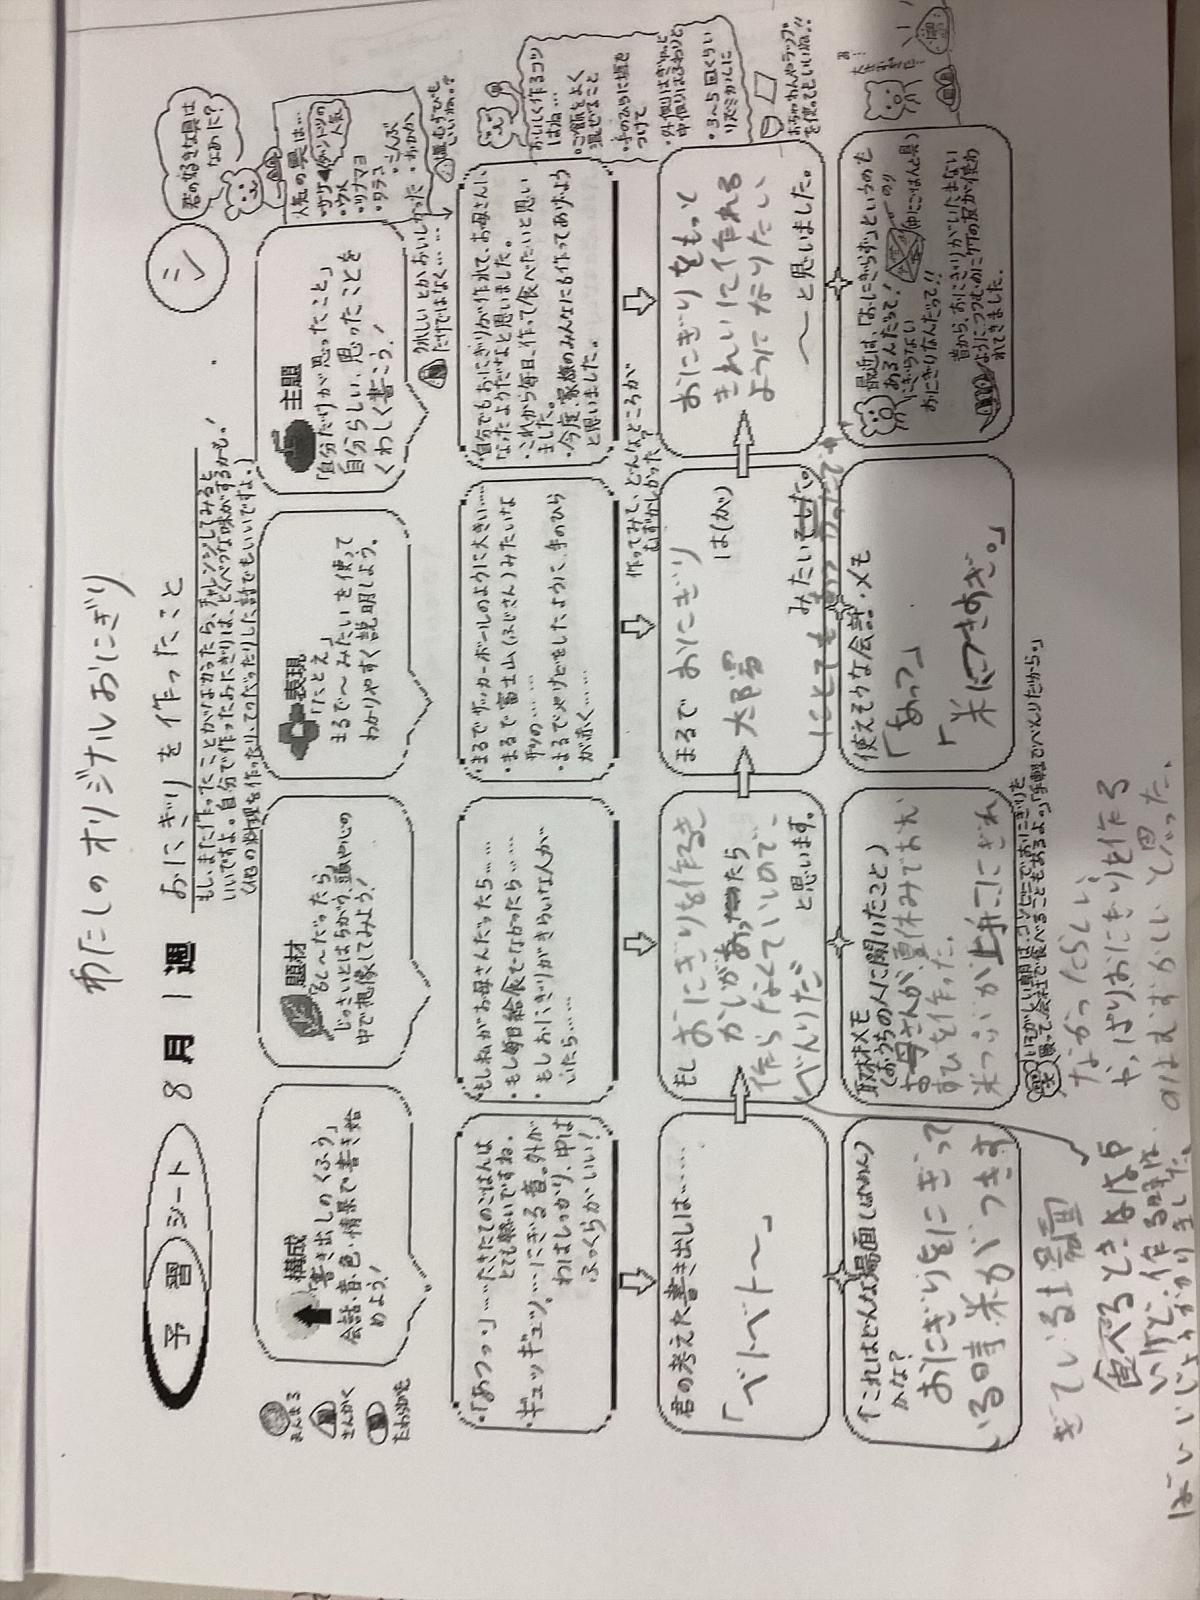 わたしのオリジナルおにぎり
予習シート
8月1週
おにぎりを作ったこと
シ
もし、まだ作ったことがなかったら、チャレンジしてみると
いいですよ。自分で作ったおにぎりは、とくべつな味がするかも!
(他の料理を作ったり、てつだったりした話でもいいですよ。)
君の好きな具は
なあに?
人気の具は…
・ウメ
・ツナマヨ
・タラコ
・こんぶ
・おかか
まんまる
さんかく
たわらがた
構成
「書き出しのくふう」
会話・音・色・情景で書き始
めよう!
題材
「もし〜だったら」
じっさいとはちがう、頭や心の
中で想像してみよう!
表現
「たとえ」
まるで〜みたいを使って
わかりやすく説明しよう。
主題
「自分だけが思ったこと」
自分らしい、思ったことを
くわしく書こう!
うれしいとかおいしかった
だけではなく……
・「あつっ!」…たきたてのごはんは
とても熱いですね。
・ギュッギュッ。…にぎる音。外が
わはしっかり、中は
ふっくらがいい!
・もし私がお母さんだったら……
・もし毎日給食でなかったら……
・もしおにぎりがきらいな人が
いたら……
・まるでサッカーボールのように大きい……
・まるで富士山(ふじさん)みたいな
形の……
・まるでやけどをしたように、手のひら
が赤く……
・自分でもおにぎりが作れて、お母さんに
なったようだなと思いました。
・これから毎日、作って食べたいと思い
ました。
・今度、家族のみんなにも作ってあげよう
と思いました。
おいしく作るコツ
はね…
・ご飯をよく
混ぜること
・手のひらに塩を
つけて
・外側はぎゅっと
中側はふわりと
・3〜5回くらい
リズミカルに
おちゃわんやラップ
を使ってもいいね!!
作ってみて、どんなところが
むずかしかった?
君の考えた書き出しは……
「ベトベト〜」
もし
おにぎりを作るき
かいがあったら
作らなくていいので、
べんりだ
と思います。
まるで おにぎり は(が)
太陽
みたいでした。
おにぎりをもっと
きれいにて作れる
ようになりたい
〜と思いました。
(これはどんな場面(ばめん)
かな?
おにぎりをにぎって
いる時、米がつきす
ぎている場面
取材メモ
(おうちの人に聞いたこと)
お母さんが、夏休みでおむ
すびを作った。
米つぶが上手ににぎれ
なかったらしい
使えそうな会話・メモ
「あつっ」
「米につきすぎ。」
最近は、「おにぎらず」というのも
あるんだって!
にぎらない
おにぎりなんだって!!
昔から、おにぎりがいたまない
ようにつつむために竹の皮が使わ
れてきました。
いそがしい朝は、コンビニでおにぎりを
買って、会社で食べることもあるよ。」「手軽でべんりだから。」
やっぱりおにぎりを作る
のはむずかしいと思った。
食べるときはあ
いけど、作る時は